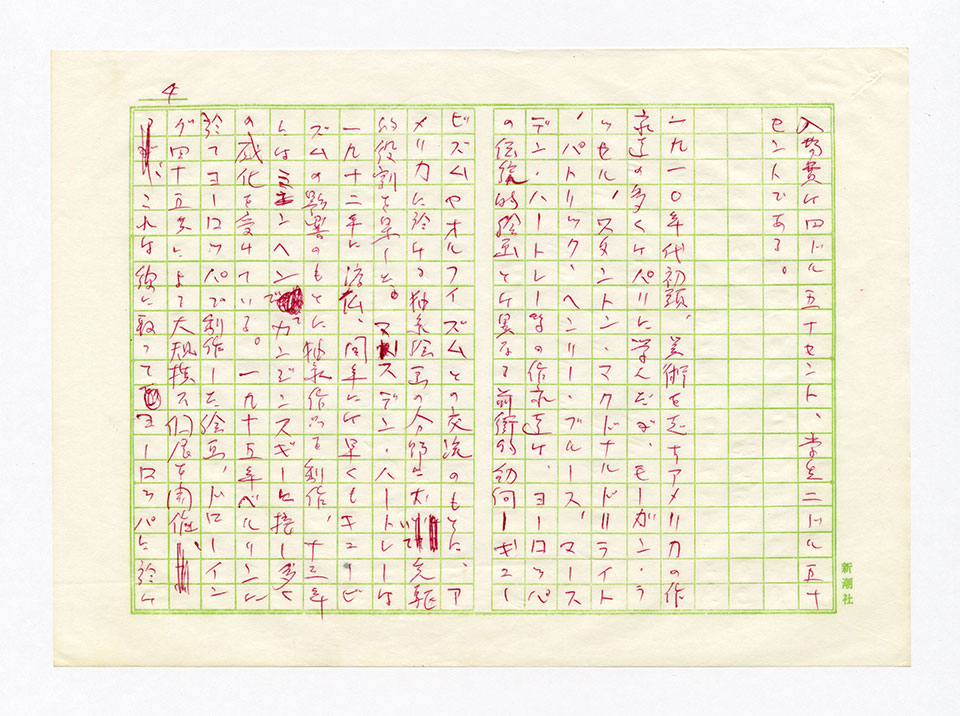 4
入場費は四ドル五十セント、学生二ドル五十
セントである。
一九一〇年代初頭、美術を志すアメリカの作
家達の多くはパリに学んだが、モーガン・ラ
ッセル、スタントン・マクドナルド＝ライト
、パトリック・ヘンリー・ブルース、マース
デン・ハートレー等の作家達は、ヨーロッパ
の伝統的絵画とは異なる前衛的動向ーキュー
ビズムやオルフイズムとの交流のもとに、ア
メリカに於ける抽象絵画の分野に於いて先駆
的役割を果した。マースデン・ハートレーは
一九十二年に渡仏、同年には早くもキュービ
ズムの影響のもとに抽象作品を制作、十三年
にはミュンヘンでカンデンスキーと接し多く
の感化を受けている。一九十五年ベルリンに
於てヨーロッパで制作した絵画、ドローイン
グ四十五点によって大規模な個展を開催、
これは彼に取ってヨーロッパに於け
新潮社